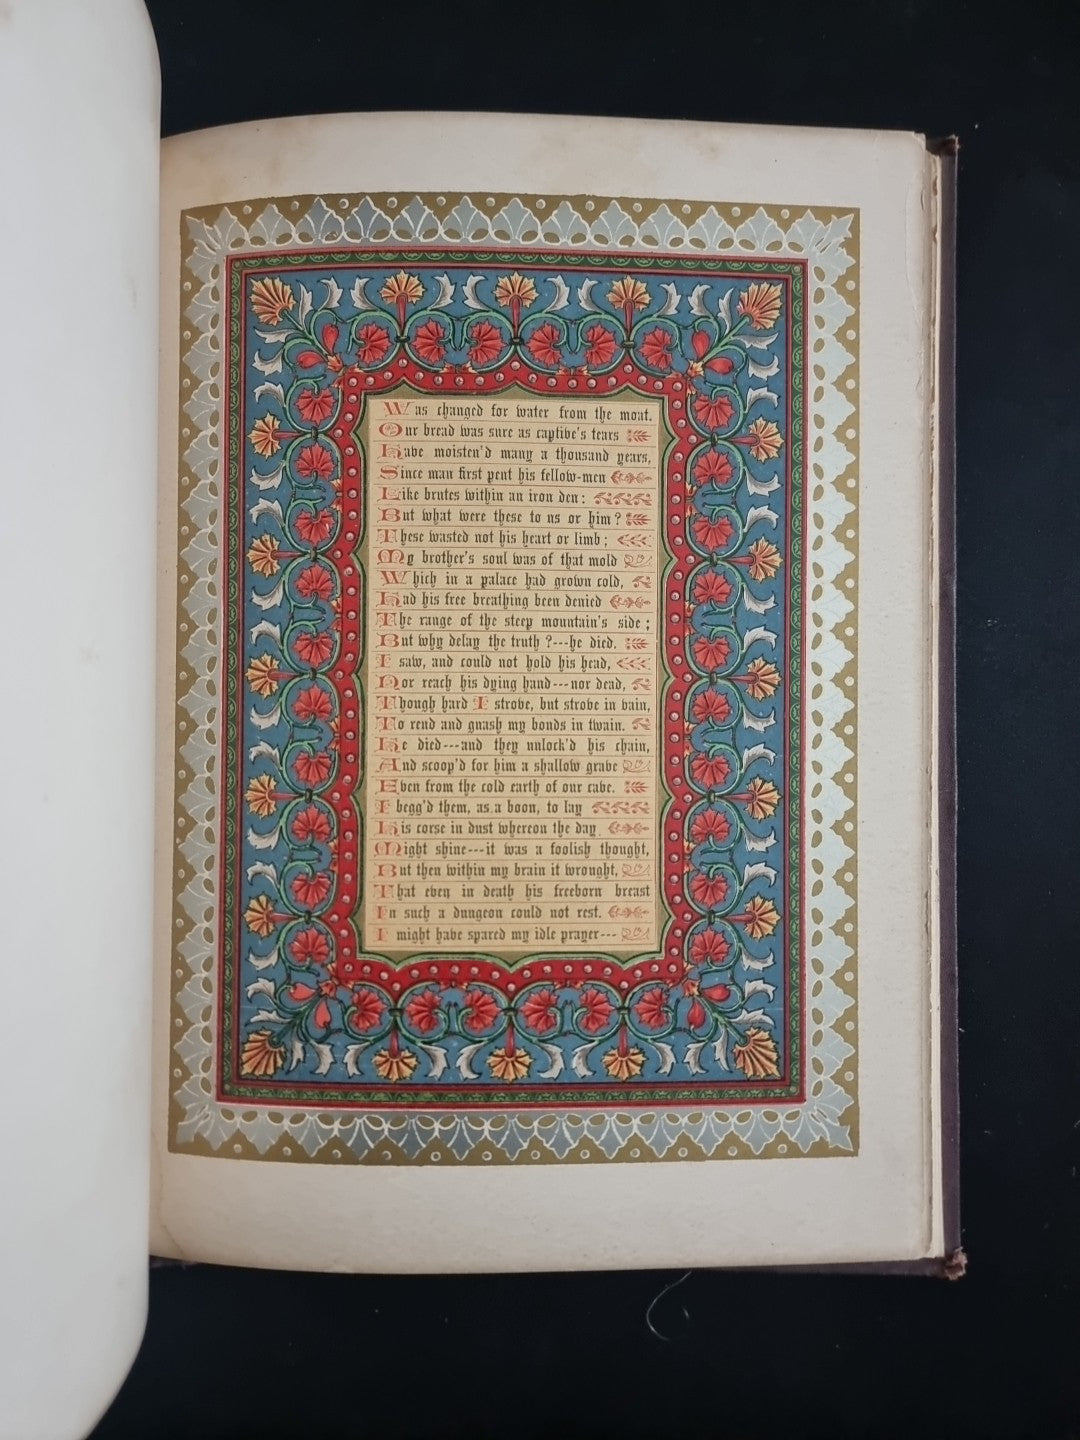 Was changed for water from the moat.
Our bread was sure as captive's tears
Have moisten'd many a thousand years,
Since man first pent his fellow-men
Like brutes within an iron den:
But what were these to us or him?
These wasted not his heart or limb;
My brother's soul was of that mold
Which in a palace had grown cold,
Had his free breathing been denied
The range of the steep mountain's side;
But why delay the truth?---he died.
I saw, and could not hold his head,
Nor reach his dying hand---nor dead,
Though hard I strove, but strove in vain,
To rend and gnash my bonds in twain.
He died---and they unlock'd his chain,
And scoop'd for him a shallow grave
Even from the cold earth of our cave.
I begg'd them, as a boon, to lay
His corse in dust whereon the day
Might shine---it was a foolish thought,
But then within my brain it wrought,
That even in death his freeborn breast
In such a dungeon could not rest.
I might have spared my idle prayer---